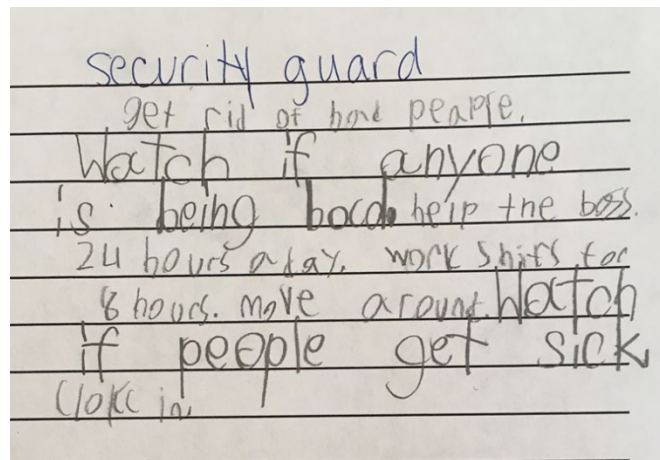 security guard
get rid of bad people.
Watch if anyone
is being bacd help the boss.
24 hours a day. work shifts for
8 hours. move around. Watch
if people get sick
Clokc in.